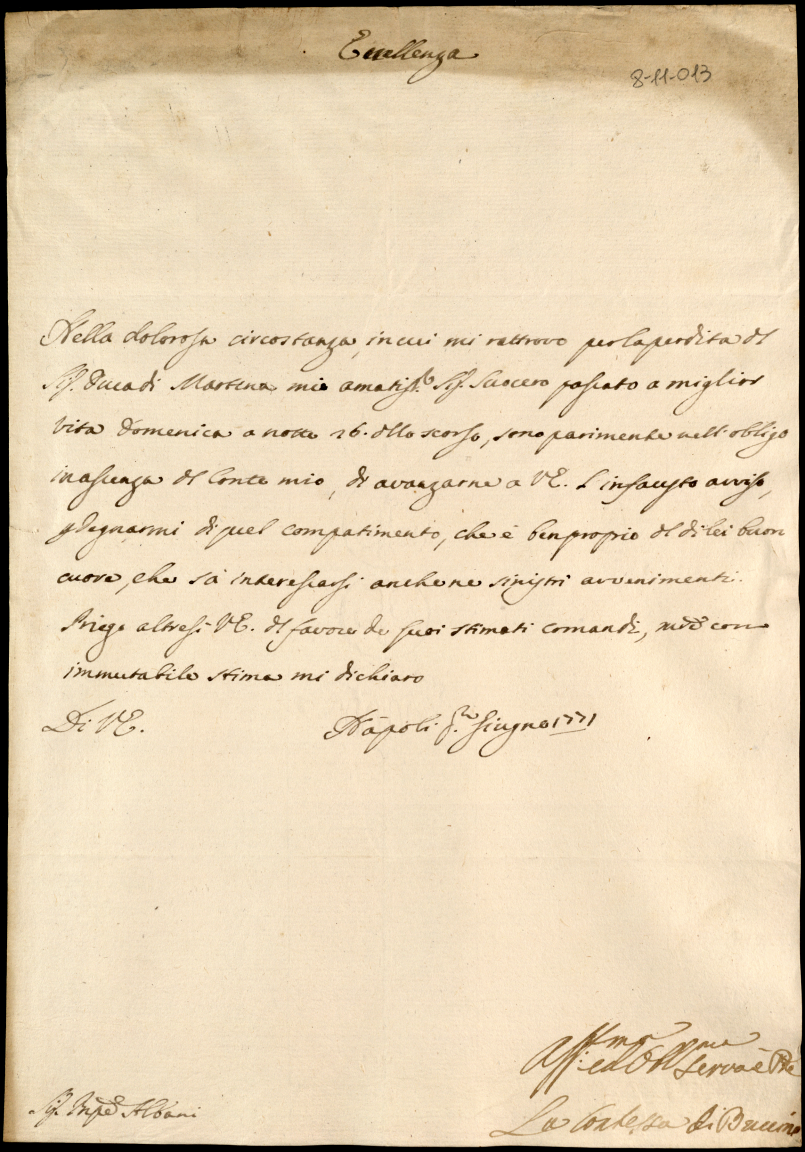 Eccellenza
8-11-013
Nella dolorosa circostanza, in cui mi rattrovo per la perdita del
Sig. Duca di Martina mio amatiss.º Sig. Suocero passato a miglior
vita Domenica a notte 26. dello scorso, sono parimente nell'obligo
in assenza del Conte mio, di avanzarne a V.E. l'infausto avviso,
p degnarmi di quel compatimento, che è ben proprio del di lei buon
cuore, che sà interessarsi anche ne sinistri avvenimenti.
Priego altresì V.E. del favore de suoi stimati comandi, mentre con
immutabile stima mi dichiaro
Di V.E. Napoli p.mo Giugno 1771
Aff.ma ed Obl.ma serva e P.te
La Contessa di Buccino
Sig. Prnpe Albani